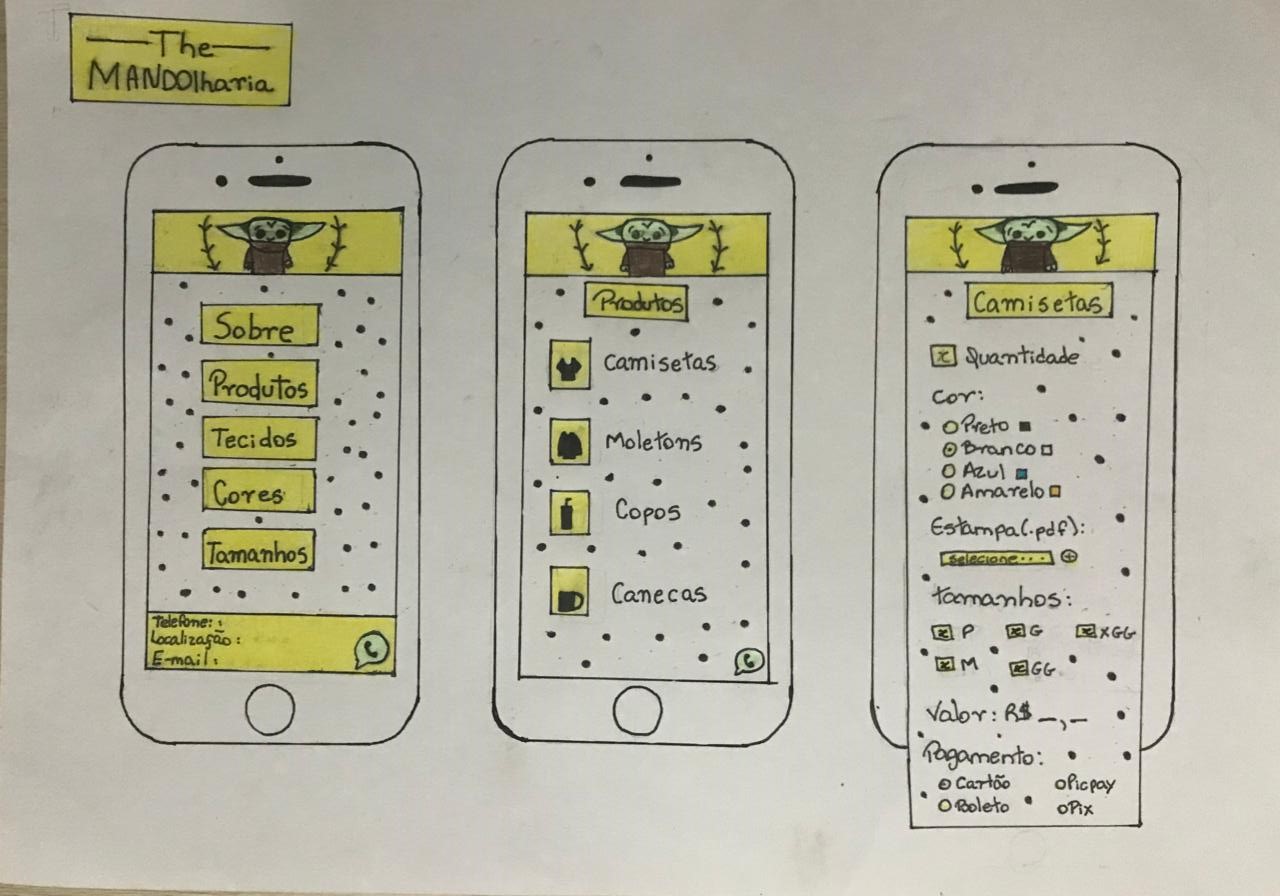 The
MANDOlharia
Sobre
Produtos
Tecidos
Cores
Tamanhos
Telefone:
Localização:
E-mail:
Produtos
Camisetas
Moletons
Copos
Canecas
Camisetas
x Quantidade
Cor:
Preto
Branco
Azul
Amarelo
Estampa(.pdf):
Selecione...
Tamanhos:
x P x G x XGG
x M x GG
Valor: R$ _,_
Pagamento:
Cartão Picpay
Boleto Pix